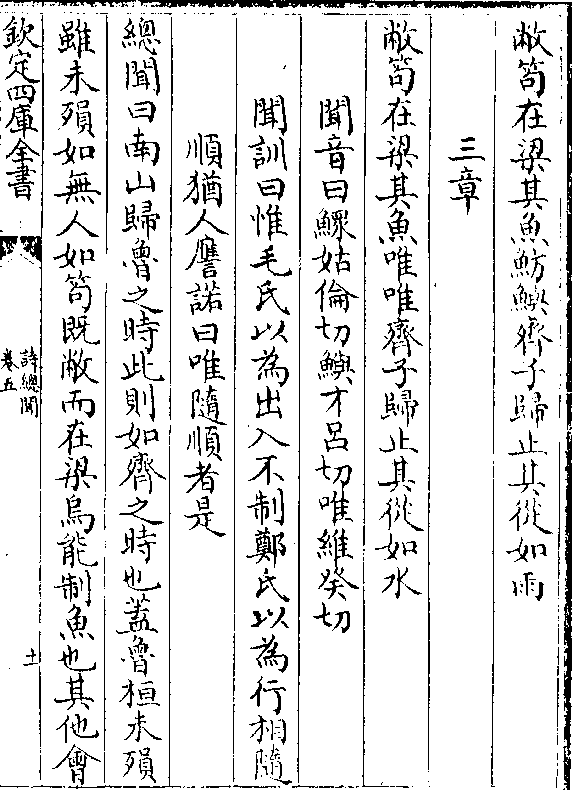 敝笱在梁其魚魴鱮齊子歸止其從如雨
三章
敝笱在梁其魚唯唯齊子歸止其從如水
聞音曰鰥姑倫切鱮才呂切唯維癸切
聞訓曰惟毛氏以為出入不制鄭氏以為行相隨
順猶人譍諾曰唯隨順者是
總聞曰南山歸魯之時此則如齊之時也蓋魯桓未殞
雖未殞如無人如笱既敝而在梁烏能制魚也其他會
欽定四庫全書
詩總聞
卷五
十一